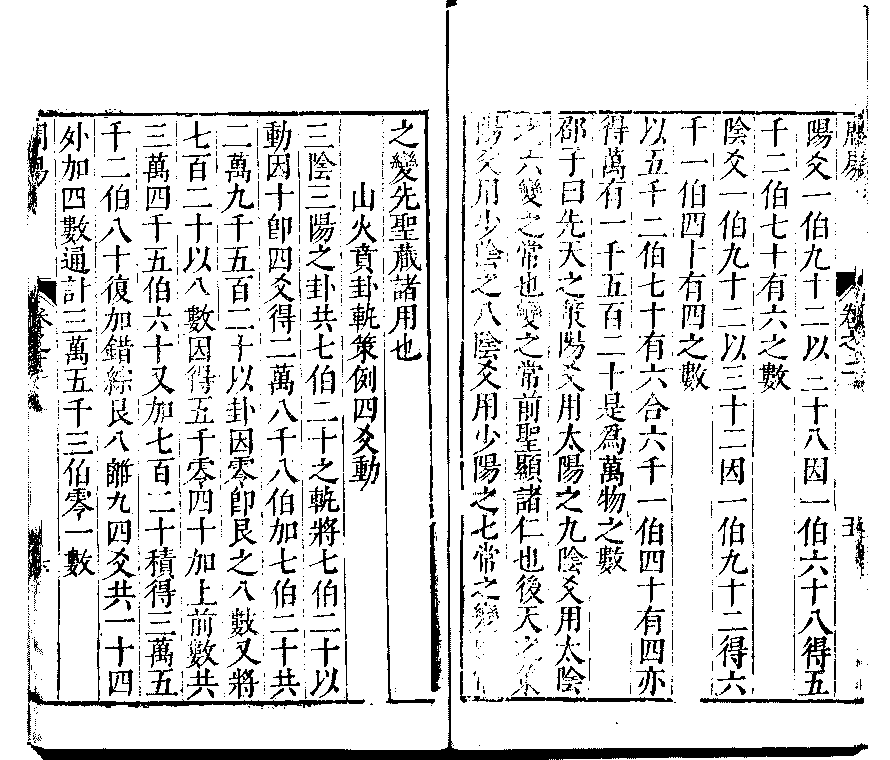 陽爻一伯九十二以二十八因一伯六十八得五
千二伯七十有六之數
陰爻一伯九十二以三十二因一伯九十二得六
千一伯四十有四之數
以五千二伯七十有六合六千一伯四十有四亦
得萬有一千五百二十是爲萬物之數
邵子曰先天之策陽爻用太陽之九陰爻用太陰
之六變之常也變之常前聖顯諸仁也後天之策
陽爻用少陰之八陰爻用少陽之七常之變
卷之二
五
之變先聖藏諸用也
山火賁卦軌策例四爻動
三陰三陽之卦共七伯二十之軌將七伯二十以
動因十卽四爻得二萬八千八伯加七伯二十共
二萬九千五百二十以卦因零卽艮之八數又將
七百二十以八數因得五千零四十加上前數共
三萬四千五伯六十又加七百二十積得三萬五
千二伯八十復加錯綜艮八離九四爻共一十四
外加四數通計三萬五千三伯零一數